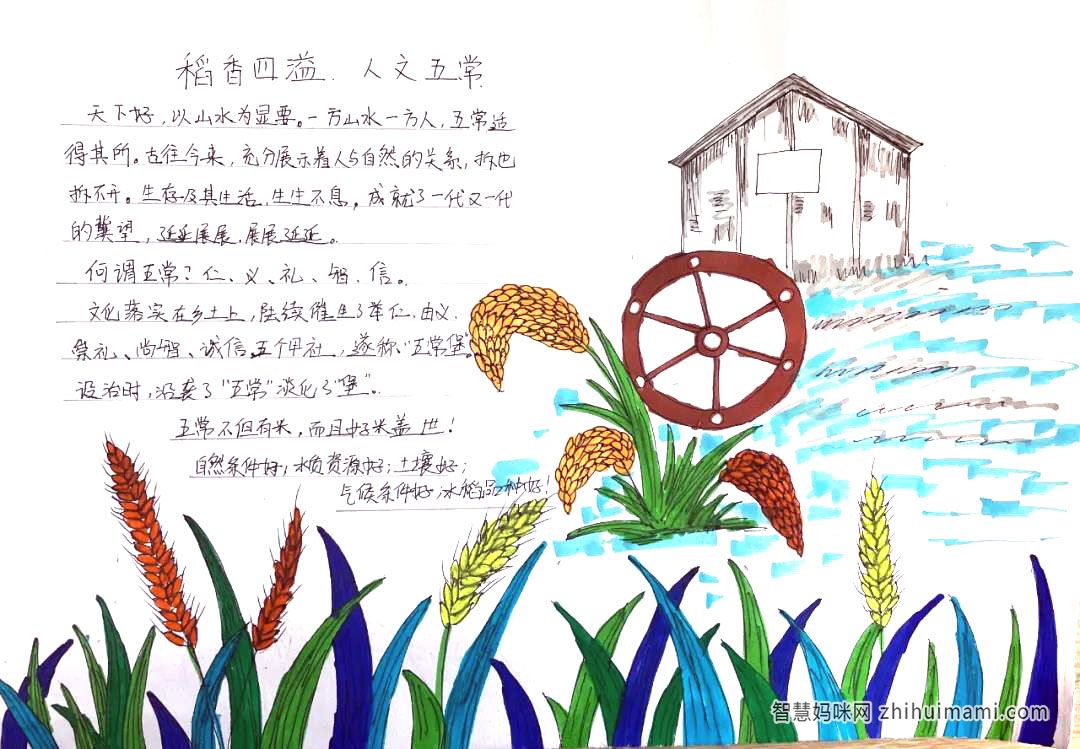 稻香四溢.人文五常
天下好，以山水为显要。一方山水一方人，五常适
得其所。古往今来，充分展示着人与自然的关系，拆也
拆不开。生存及其生活，生生不息。成就了一代又一代
的冀望，延延展展，展展延延。
何谓五常？仁、义、礼、智、信。
文化落实在乡土上，陆续催生了举仁、由义、
崇礼、尚智、诚信五个甲社，遂称"五常堡"。
设治时，沿袭了"五常"淡化了"堡"。
五常不但有米，而且好米盖世！
自然条件好；水质资源好；土壤好；
气候条件好；水稻品种好！
智慧妈咪网 zhihuimami.com